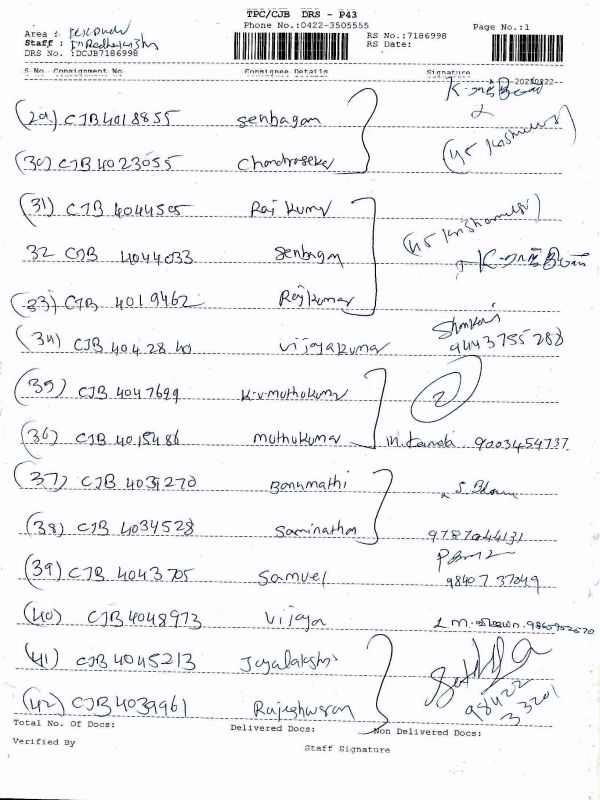 TPC/CJB DRS - P43
Phone No.:0422-3505555
Page No.:1
Area :
Staff :
DRS No. :DCJB7186998
RS No.:7186998
RS Date:
S.No. Consignment No. Consignee Details Signature
(29) CJB 4018855 Senbagam
(30) CJB 4023055 Chandrasekar
(31) CJB 4044505 Raj Kumar
32 CJB 4044033 Senbagam
(33) CJB 4019462 Rajkumar
(34) CJB 4042840 Vijayakumar 9443755288
(35) CJB 4047699 K.V.Muthukumar 2
(36) CJB 4015486 Muthukumar 9003454737
(37) CJB 4039270 Banumathi
(38) CJB 4034528 Saminathan 9787044131
(39) CJB 4043705 Samuel 98407 37249
(40) CJB 4048973 Vijaya
41) CJB 4045213 Jayalakshmi
(42) CJB 4039961 Rajeshwaran 98422 33201
Total No. Of Docs: Delivered Docs: Non Delivered Docs:
Verified By Staff Signature